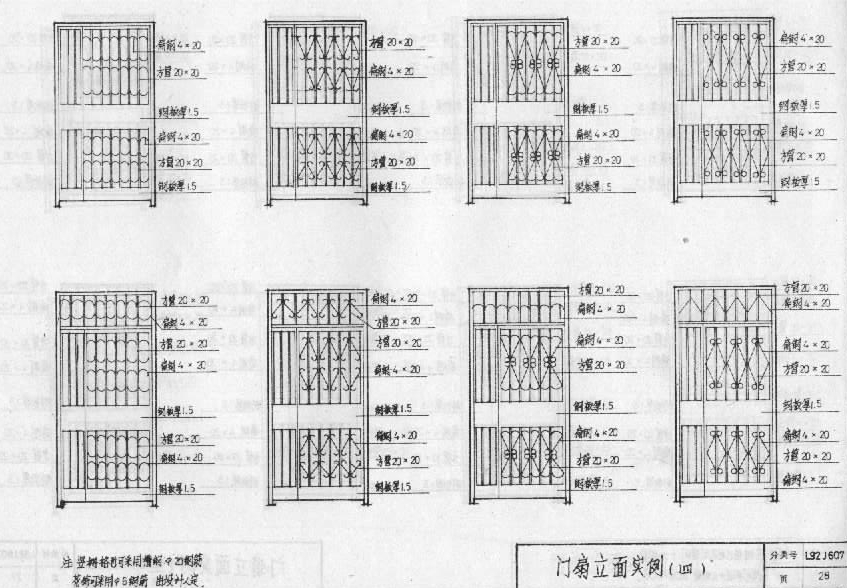 扁钢4×20
方管20×20
钢板厚1.5
扁钢4×20
方管20×20
钢板厚1.5
方管20×20
扁钢4×20
钢板厚1.5
扁钢4×20
方管20×20
钢板厚1.5
方管20×20
扁钢4×20
钢板厚1.5
扁钢4×20
方管20×20
钢板厚1.5
扁钢4×20
方管20×20
钢板厚1.5
扁钢4×20
方管20×20
钢板厚1.5
方管20×20
扁钢4×20
方管20×20
扁钢4×20
钢板厚1.5
方管20×20
扁钢4×20
钢板厚1.5
扁钢4×20
方管20×20
方管20×20
扁钢4×20
钢板厚1.5
扁钢4×20
方管20×20
钢板厚1.5
方管20×20
扁钢4×20
扁钢4×20
方管20×20
钢板厚1.5
扁钢4×20
方管20×20
钢板厚1.5
方管20×20
扁钢4×20
扁钢4×20
方管20×20
钢板厚1.5
扁钢4×20
方管20×20
扁钢4×20
注 竖栅格可采用槽钢
门扇立面实例(四)
分类号 L92J607
页 28